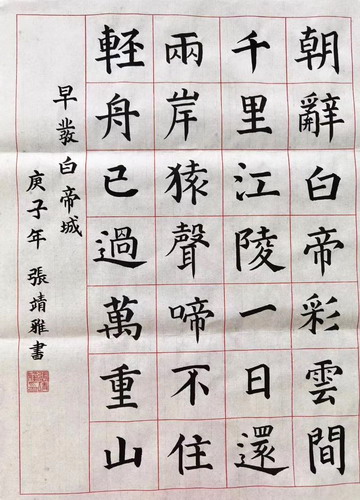 朝辭白帝彩雲間
千里江陵一日還
兩岸猿聲啼不住
輕舟已過萬重山
早發白帝城
庚子年 張靖雅書